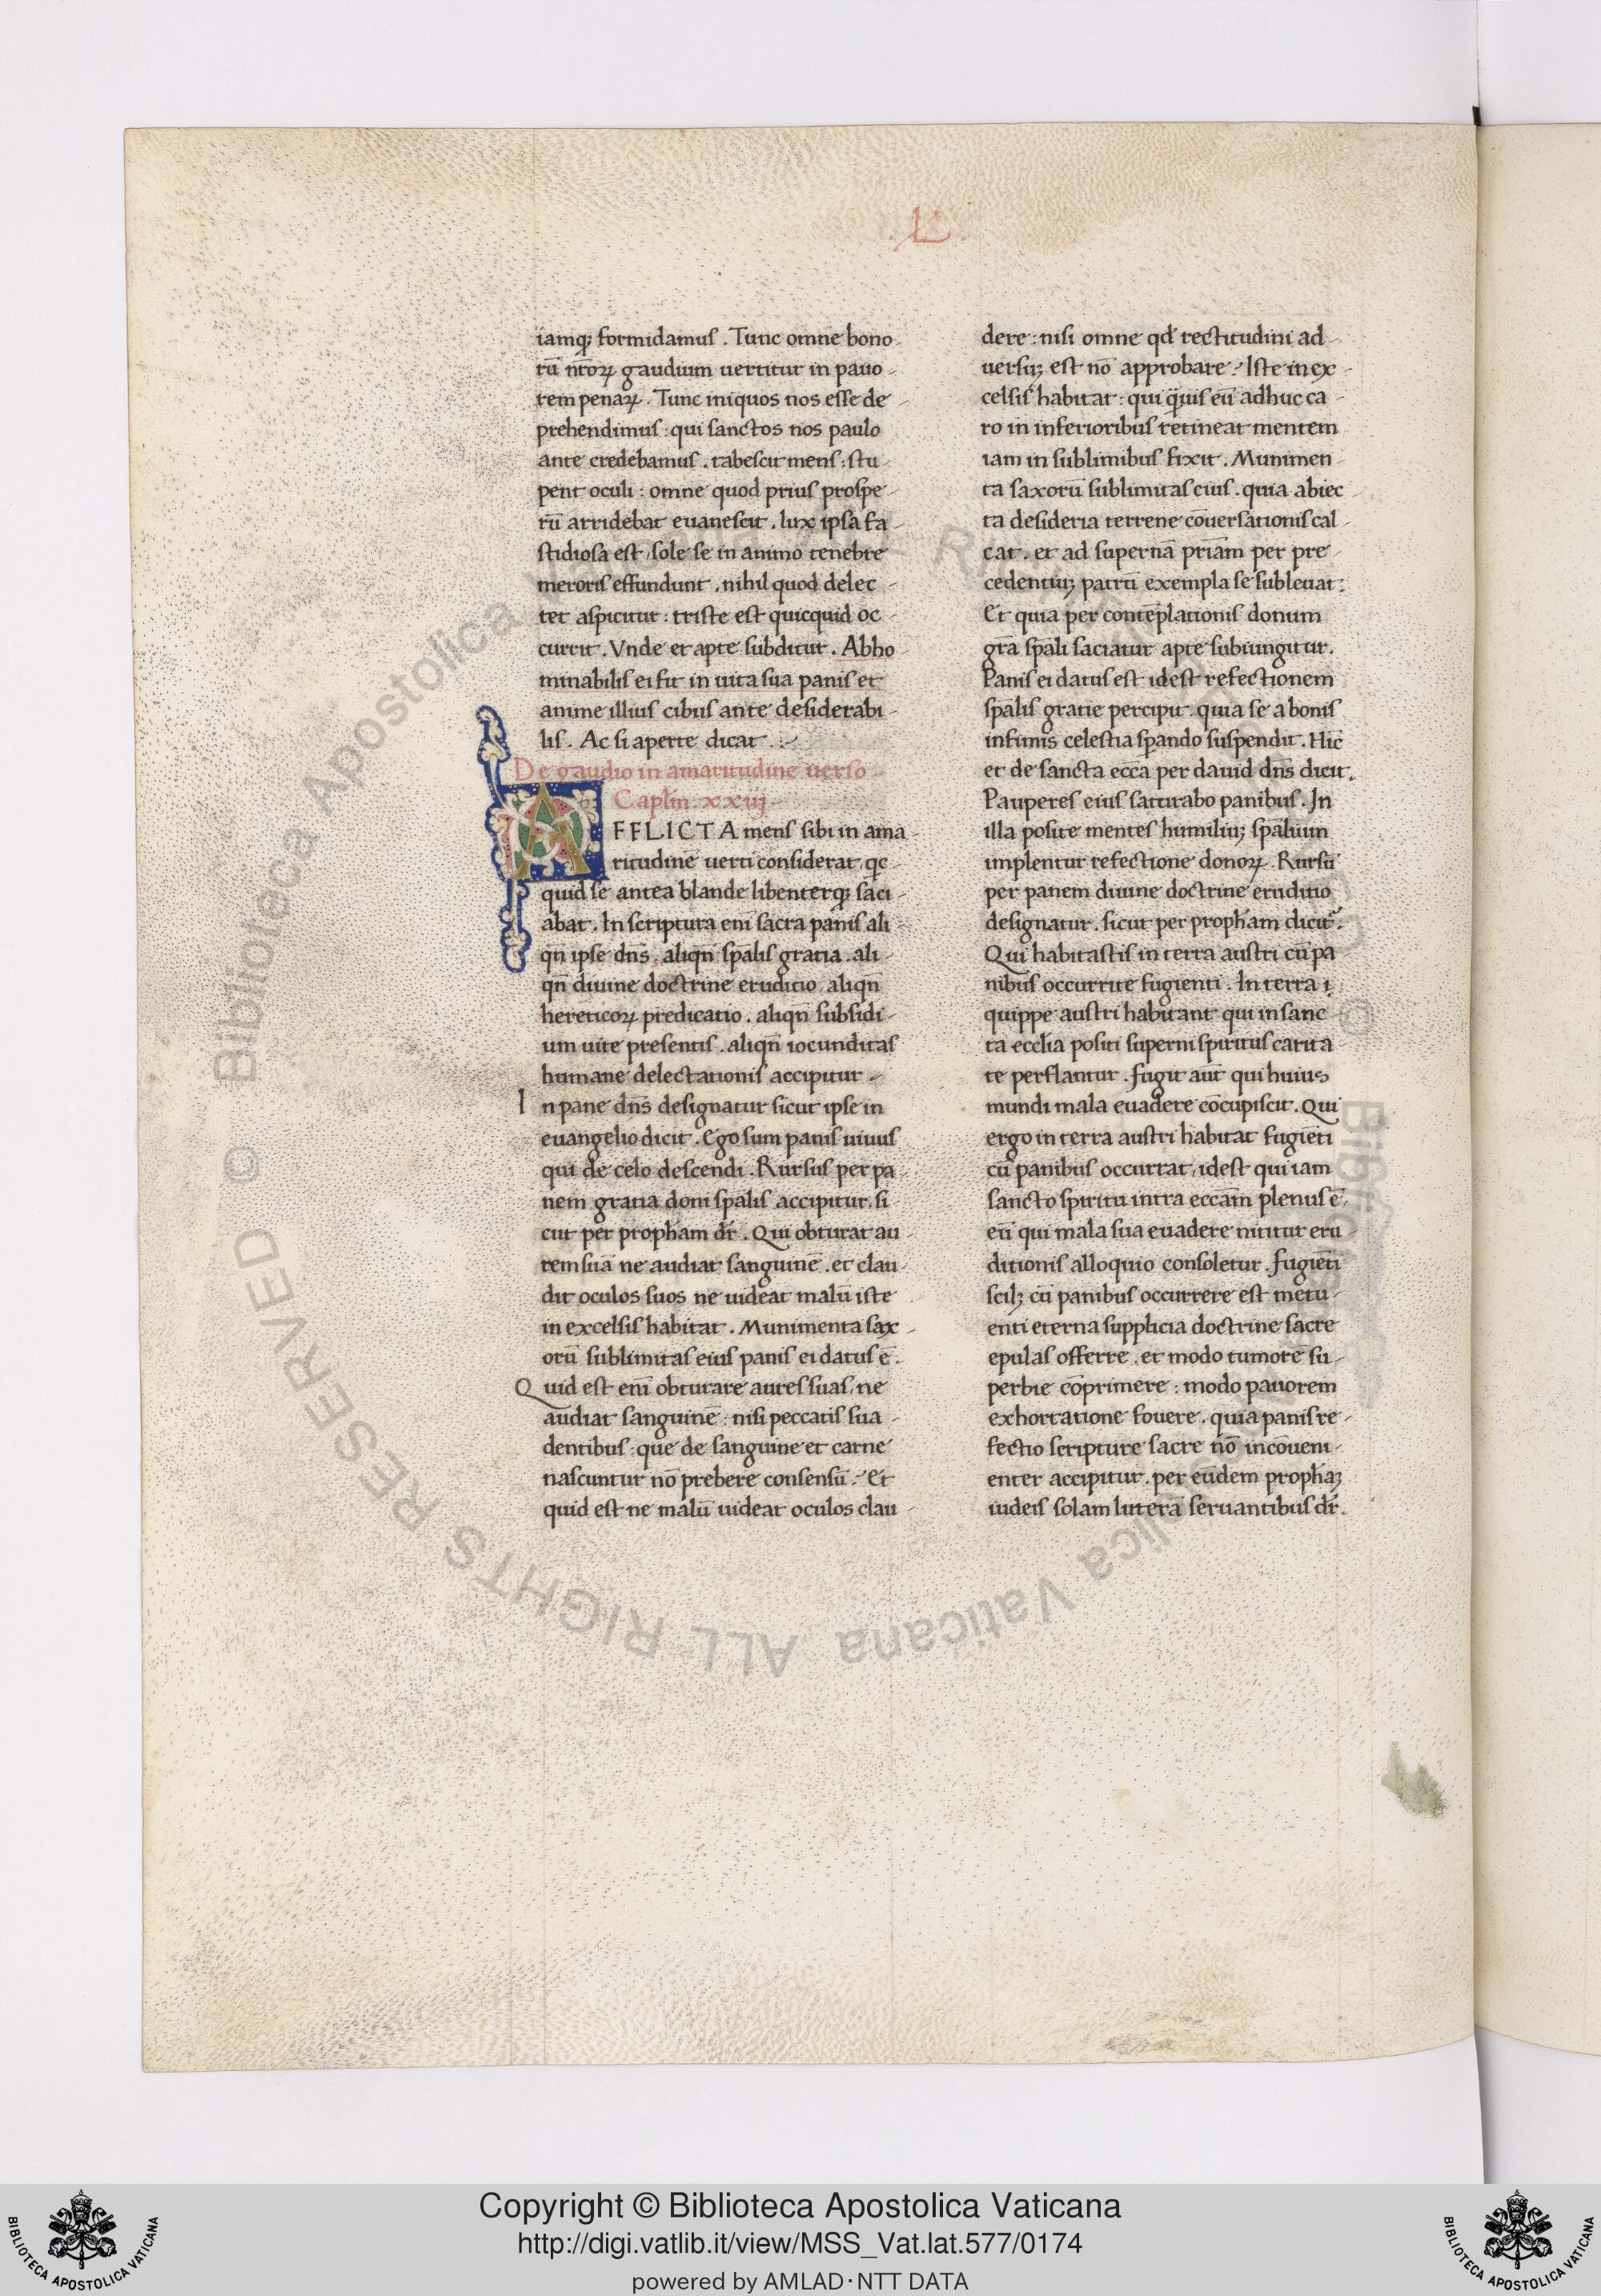 .L.
iamq; formidamus. Tunc omne bono-
rū nr̄oꝝ gaudium uertitur in pauo-
rem penaꝝ. Tunc iniquos nos esse de-
prehendimus: qui sanctos nos paulo
ante credebamus. tabescit mens: stu-
pent oculi: omne quod prius prospe-
rū arridebat euanescit. lux ipsa fa-
stidiosa est, sole se in animo tenebre
meroris effundunt. nihil quod delec-
tet aspicitur: triste est quicquid oc-
currit. Vnde et apte subditur. Abho-
minabilis ei fit in uita sua panis et
anime illius cibus ante desiderabi-
lis. Ac si aperte dicat.
De gaudio in amaritudine uerso
Caplm̄. xxiij
AFFLICTA mens sibi in ama-
ritudinē uerti considerat qc-
quid se antea blande libenterq; saci-
abat. In scriptura eni̅ sacra panis ali-
qn̄ ipse dn̄s. aliqn̄ sp̄alis gratia. ali-
qn̄ diuine doctrine eruditio, aliqn̄
hereticoꝝ predicatio. aliqn̄ subsidi-
um uite presentis. aliqn̄ iocunditas
humane delectationis accipitur
In pane dn̄s designatur sicut ipse in
euangelio dicit. Ego sum panis uiuus
qui de celo descendi. Rursus per pa-
nem gratia doni sp̄alis accipitur. si
cut per proph̄am dr̄. Qui obturat au-
rem suā ne audiat sanguinē. et clau-
dit oculos suos ne uideat malū iste
in excelsis habitat. Munimenta sax-
orū sublimitas eius panis ei datus ē.
Quid est eni̅ obturare aures suas, ne
audiat sanguinē: nisi peccatis sua-
dentibus: que de sanguine et carne
nascuntur nō prebere consensū. Et
quid est ne malū uideat oculos clau-
dere: nisi omne qd̄ rectitudini ad-
uersuꝫ est nō approbare. Iste in ex-
celsis habitat: qui q̄uis eū adhuc ca-
ro in inferioribus retineat mentem
iam in sublimibus fixit. Munimen-
ta saxorū sublimitas eius. quia abiec-
ta desideria terrene cōuersationis cal-
cat. et ad supernā pr̄iam per pre-
cedentiuꝫ patrū exempla se subleuat.
Et quia per contēplationis donum
gr̄a sp̄ali saciatur apte subiungitur.
Panis ei datus est idest refectionem
sp̄alis gratie percipit. quia se a bonis
infimis celestia sperando suspendit. Hic
et de sancta ecc̄a per dauid dn̄s dicit.
Pauperes eius saturabo panibus. In
illa posite mentes humiliuꝫ sp̄alium
implentur refectione donoꝝ. Rursū
per panem diuine doctrine eruditio
designatur. sicut per proph̄am dicit̃.
Qui habitastis in terra austri cū pa
nibus occurrite fugienti. In terra
quippe austri habitant qui in sanc-
ta eccl̄ia positi superni spiritus carita-
te perflantur. fugit aūt qui huius
mundi mala euadere cōcupiscit. Qui
ergo in terra austri habitat fugiēti
cū panibus occurrat, idest qui iam
sancto spiritu intra ecc̄am plenus ē,
eū qui mala sua euadere nititur eru-
ditionis alloquio consoletur. fugiēti
scilꝫ cū panibus occurrere est metu-
enti eterna supplicia doctrine sacre
epulas offerre. et modo tumorē su-
perbie cōprimere: modo pauorem
exhortatione fouere. quia panis re-
fectio scripture sacre nō incōueni-
enter accipitur. per eūdem proph̄aꝫ
iudeis solam litterā seruantibus dr̄.
© Biblioteca Apostolica Vaticana ALL RIGHTS RESERVED
Copyright © Biblioteca Apostolica Vaticana
http://digi.vatlib.it/view/MSS_Vat.lat.577/0174
powered by AMLAD·NTT DATA
BIBLIOTECA APOSTOLICA VATICANA
BIBLIOTECA APOSTOLICA VATICANA